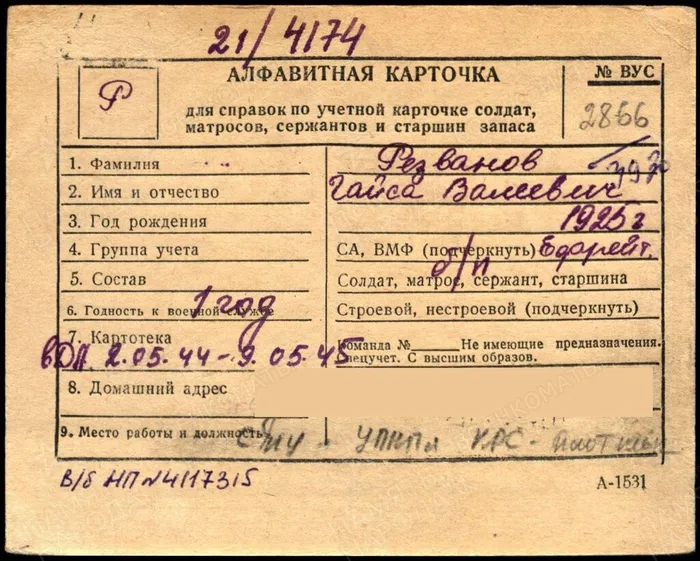 21/4174
АЛФАВИТНАЯ КАРТОЧКА
№ ВУС
Р
для справок по учетной карточке солдат,
матросов, сержантов и старшин запаса
2866
1. Фамилия Резванов
2. Имя и отчество Гайса Валеевич
3. Год рождения 1925 г
4. Группа учета СА, ВМФ (подчеркнуть) Ефрейт.
б/п
5. Состав Солдат, матрос, сержант, старшина
6. Годность к военной службе Строевой, нестроевой (подчеркнуть)
1 год
7. Картотека Команда № Не имеющие предназначения.
Спецучет. С высшим образов.
2.05.44-9.05.45
8. Домашний адрес
9. Место работы и должность СМУ - КРС -
В/б НП №4117315
А-1531